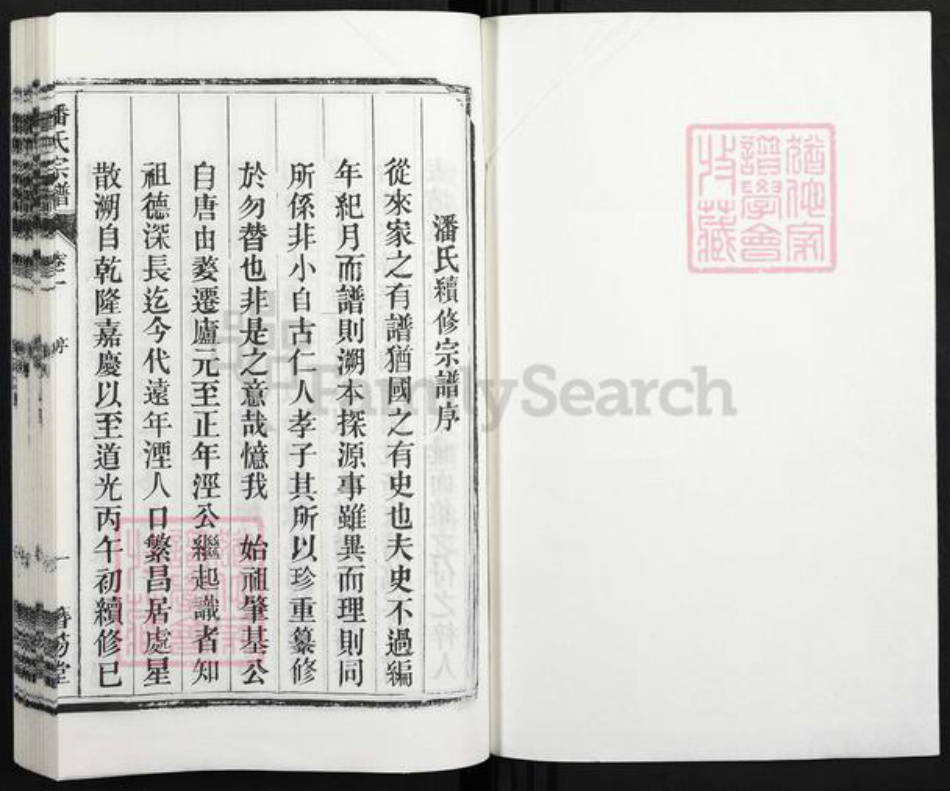 潘氏續修宗譜序
從來家之有譜猶國之有史也夫史不過編
年紀月而譜則溯本探源事雖異而理則同
所係非小自古仁人孝子其所以珍重纂修
於勿替也非是之意哉憶我　始祖肇基公
自唐由婺遷廬元至正年淫公繼起識者知
祖德深長迄今代遠年湮人口繁昌居處星
散溯自乾隆嘉慶以至道光丙午初續修已
潘氏宗譜
卷一
序
一
堂
猶他家
譜學會
收藏
FamilySearch